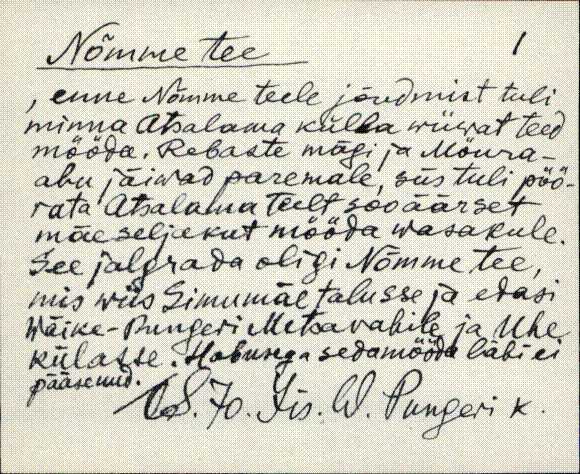 Nõmme tee 1
, enne Nõmme teele jõudmist tuli
minna Atsalama külla wiiwat teed
mööda. Rebaste mägi ja Mõura-
abu jäiwad paremale, siis tuli pöö-
rata Atsalama teelt sooäärset
mäeseljekut mööda wasakule.
See jalgrada oligi Nõmme tee,
mis wiis Simumäe talusse ja edasi
Wäike-Pungeri Metsavahile ja Uhe
külasse. Hobusega sedamööda läbi ei
pääsenud.
S. 70. Jis. W. Pungeri k.